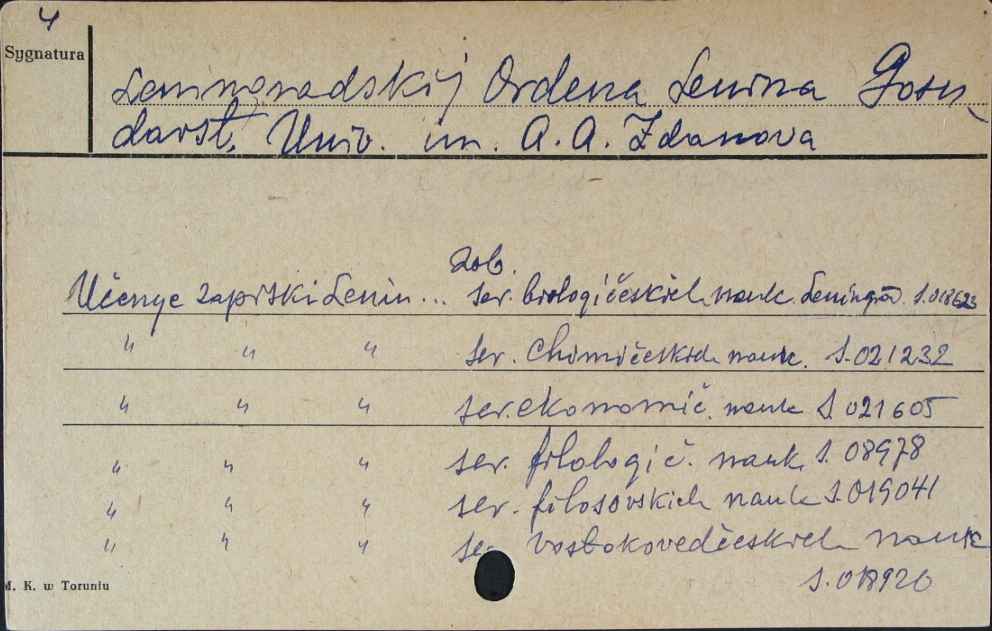 4
Sygnatura
Leningradskij Ordena Lenina Gosu-
darst. Univ. im. A. A. Ždanova
Zob.
Učenye zapiski Lenin... ser. biologičeskich nauk. Leningrad. S.018623
" " " ser. chimičeskich nauk. S.021232
" " " ser. ekonomič. nauk S.021605
" " " ser. filologič. nauk S.08978
" " " ser. filosovskich nauk S.019041
" " " ser. vostokovedčeskich nauk
S.018920
M. K. w Toruniu